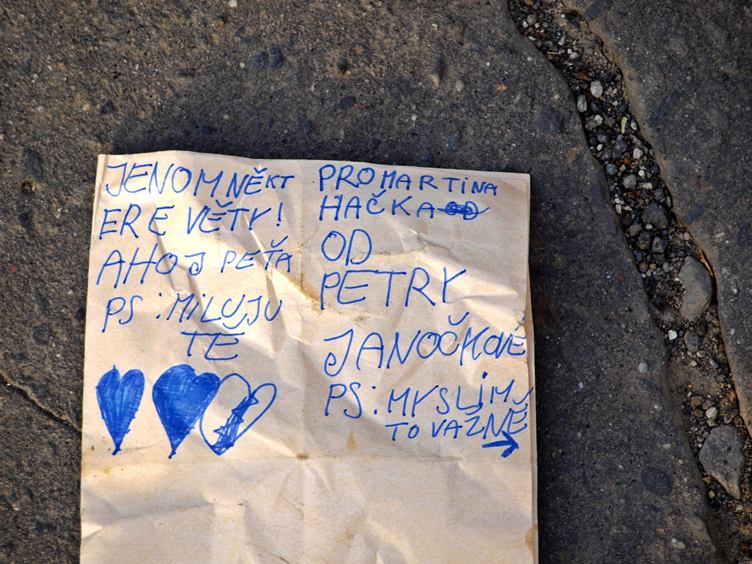 JENOM NĚKT
ERE VĚTY!
AHOJ PEŤA
PS: MiLUJU
TĚ
PRO MARTiNA
HAČKA
OD
PETRY
JANOČKOVÉ
PS: MYSLÍM
TO VAŽNĚ